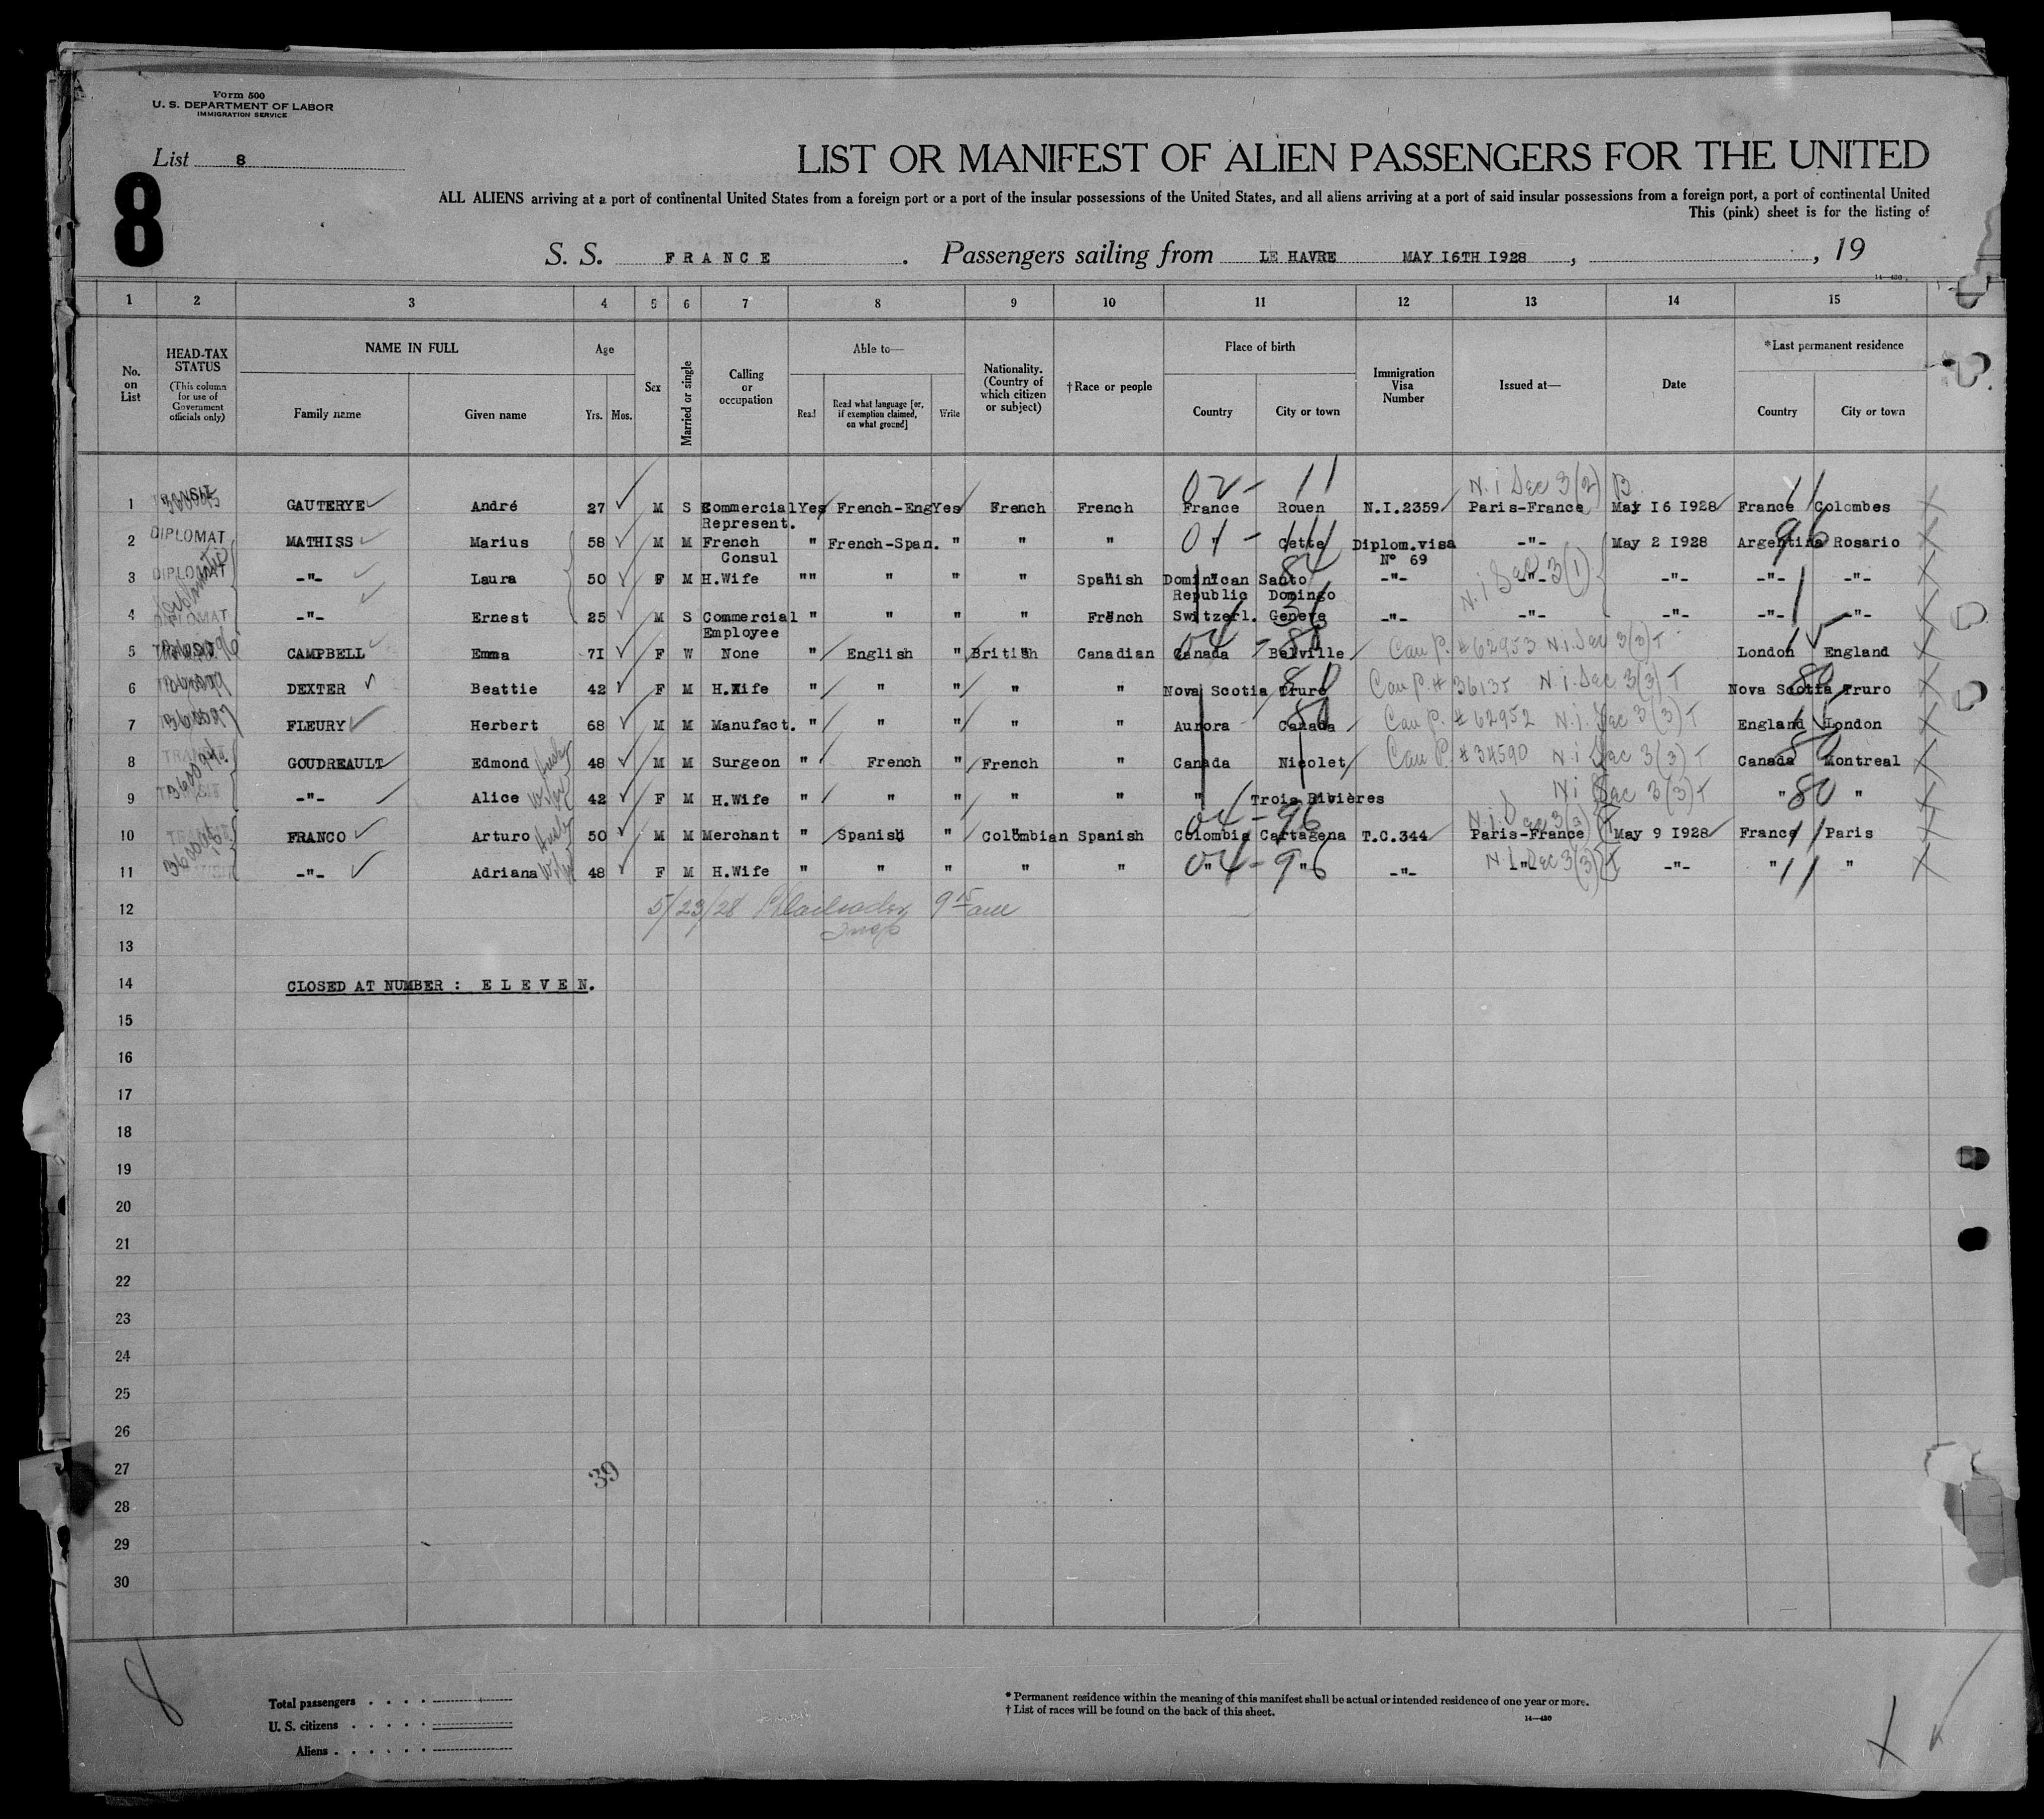 Form 500
U. S. DEPARTMENT OF LABOR
IMMIGRATION SERVICE
List 8
8
LIST OR MANIFEST OF ALIEN PASSENGERS FOR THE UNITED
ALL ALIENS arriving at a port of continental United States from a foreign port or a port of the insular possessions of the United States, and all aliens arriving at a port of said insular possessions from a foreign port, a port of continental United
This (pink) sheet is for the listing of
S. S. FRANCE . Passengers sailing from LE HAVRE MAY 16TH 1928 , , 19
14—430
1 2 3 4 5 6 7 8 9 10 11 12 13 14 15
No. on List
HEAD-TAX STATUS (This column for use of Government officials only)
NAME IN FULL Family name Given name
Age Yrs. Mos.
Sex
Married or single
Calling or occupation
Able to— Read Read what language [or, if exemption claimed, on what ground] Write
Nationality. (Country of which citizen or subject)
† Race or people
Place of birth Country City or town
Immigration Visa Number
Issued at—
Date
*Last permanent residence Country City or town
02 - 11 N.i Sec 3(2) B 11
1 GAUTERYE André 27 M S Commercial Represent. Yes French-Eng Yes French French France Rouen N.I.2359 Paris-France May 16 1928 France Colombes
01 - 11 96
2 DIPLOMAT MATHISS Marius 58 M M French Consul " French-Span. " " " " Cette Diplom.visa N° 69 -"- May 2 1928 Argentina Rosario
3 DIPLOMAT -"- Laura 50 F M H.Wife "" " " " Spanish Dominican Republic Santo Domingo -"- -"- -"- -"- -"-
N.i Sec 3(1)
4 DIPLOMAT -"- Ernest 25 M S Commercial Employee " " " " French Switzerl. Geneve -"- -"- -"- -"- -"-
5 CAMPBELL Emma 71 F W None " English " British Canadian Canada Belville Can P. # 62953 N.i. Sec 3(3) T London England
6 DEXTER Beattie 42 F M H.Wife " " " " " Nova Scotia Truro Can P. # 36135 N.i. Sec 3(3) T Nova Scotia Truro
7 FLEURY Herbert 68 M M Manufact. " " " " " Aurora Canada Can P. # 62952 N.i. Sec 3(3) T England London
8 TRANSIT GOUDREAULT Edmond Husb 48 M M Surgeon " French " French " Canada Nicolet Can P. # 34590 N.i Sec 3(3) T Canada Montreal
9 -"- Alice Wife 42 F M H.Wife " " " " " " Trois Rivières N.i Sec 3(3) T " 80 "
04 - 96 N.i. Sec 3(3) T
10 TRANSIT FRANCO Arturo Husb 50 M M Merchant " Spanish " Colombian Spanish Colombia Cartagena T.C.344 Paris-France May 9 1928 France 11 Paris
04 - 96 N.i Sec 3(3) T
11 -"- Adriana Wife 48 F M H.Wife " " " " " " " -"- -"- -"- " 11 "
12 5/23/28 9 15 am
Insp
13
14 CLOSED AT NUMBER : E L E V E N.
15
16
17
18
19
20
21
22
23
24
25
26
27 39
28
29
30
8
Total passengers . . . .
U. S. citizens . . . . .
Aliens . . . . . .
* Permanent residence within the meaning of this manifest shall be actual or intended residence of one year or more.
† List of races will be found on the back of this sheet.
14—430